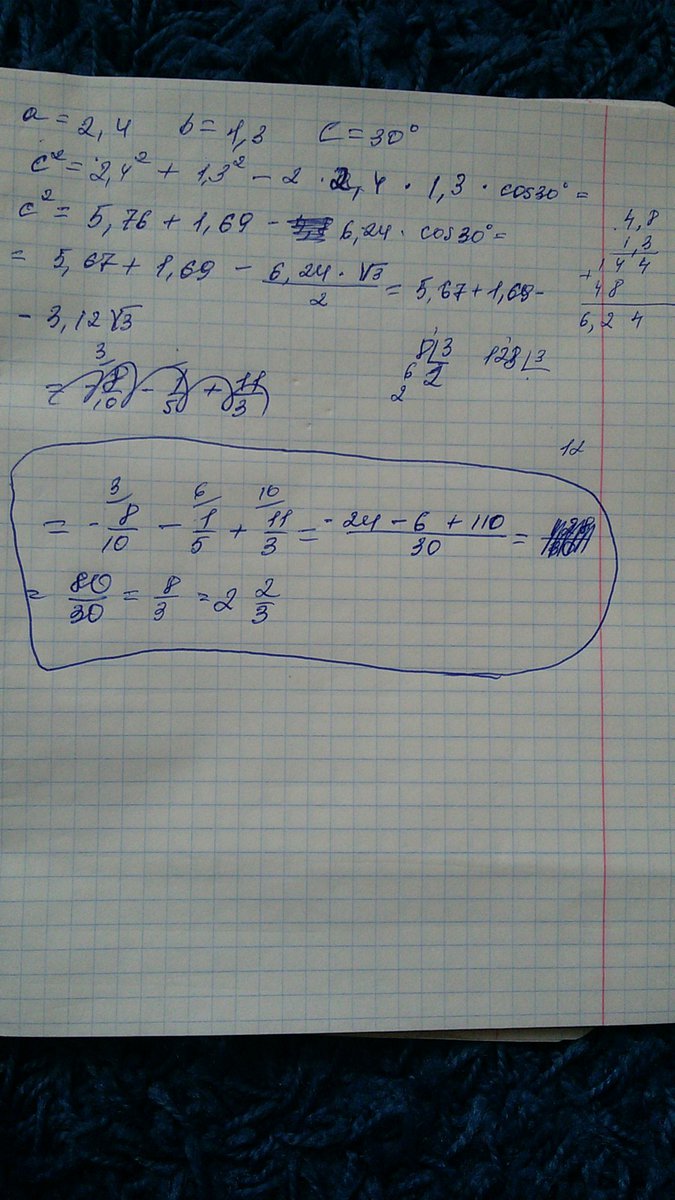 a = 2,4 b = 1,3 C = 30°
c² = 2,4² + 1,3² - 2 · 2,4 · 1,3 · cos30° =
c² = 5,76 + 1,69 - 6,24 · cos30° =
= 5,67 + 1,69 - 6,24 · √3 / 2 = 5,67 + 1,69 -
- 3,12√3
4,8
1,3
+ 1 4 4
4 8
6, 2 4
3
8/10 - 1/5 + 11/3
8 3
6 2
2
128 3
12
3 6 10
= - 8/10 - 1/5 + 11/3 = -24 - 6 + 110 / 30 =
= 80/30 = 8/3 = 2 2/3